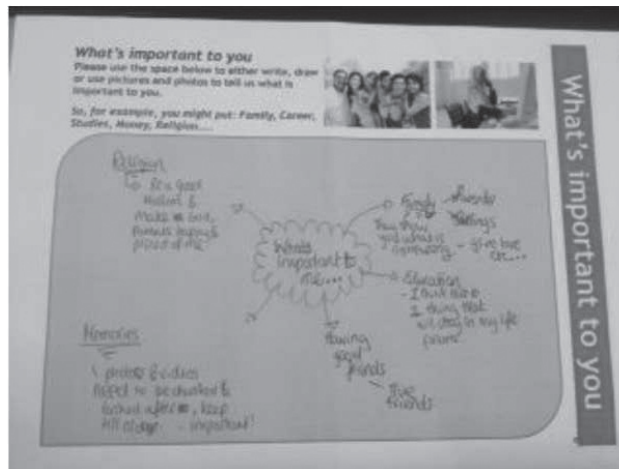 What's important to you
Please use the space below to either write, draw
or use pictures and photos to tell us what is
important to you.
So, for example, you might put: Family, Career,
Studies, Money, Religion....
What's important to you
Religion
Be a good
Muslim &
Make God,
Parents happy &
proud of me
What's
important to
me...
Family
Parents
Siblings
They show
you what is
right/wrong
- give love
etc...
Education
- I think this is
1 thing that
will stay in my life
Having
good
friends
- true
friends
Memories
photos & videos
need to be cherished &
looked after, keep
till older - important!